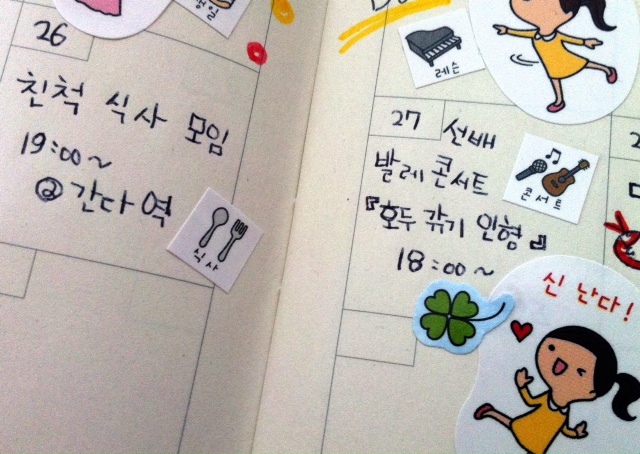 26
친척 식사 모임
19:00~
@간다역
식사
레슨
27 선배
발레 콘서트
『호두 깎기 인형』
18:00~
콘서트
신난다!